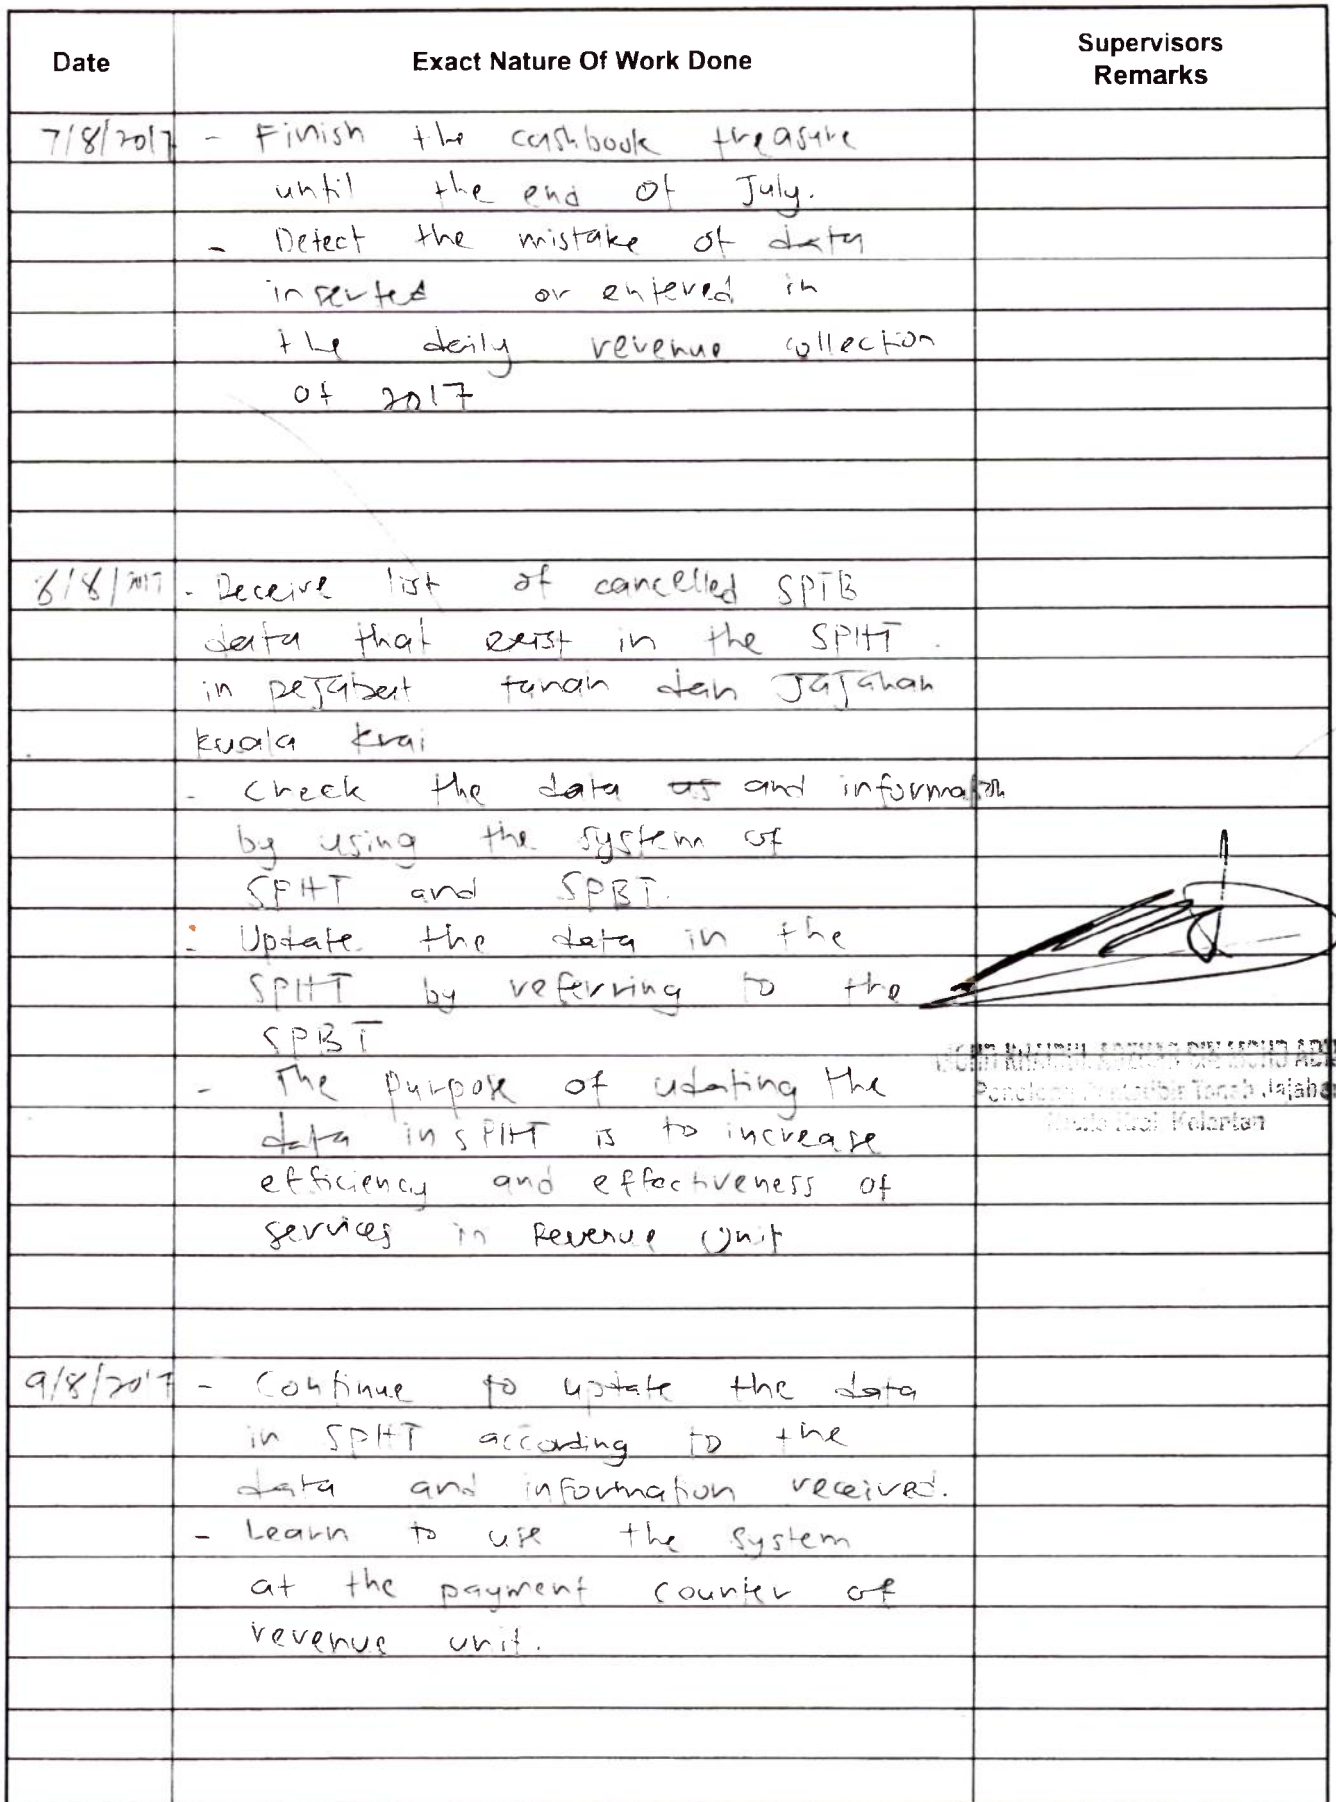 Date Exact Nature Of Work Done Supervisors Remarks
7/8/2017 - Finish the cashbook treasure
until the end of July.
- Detect the mistake of data
inserted or entered in
the daily revenue collection
of 2017
8/8/2017 - Receive list of cancelled SPTB
data that exist in the SPHT.
in pejabat tanah dan Jajahan
kuala krai
- Check the data and information
by using the system of
SPHT and SPBT.
- Update the data in the
SPHT by referring to the
SPBT
- The purpose of udating the
data in SPHT is to increase
efficiency and effectiveness of
services in Revenue Unit
Tanah Jajahan
Kelantan
9/8/2017 - Continue to update the data
in SPHT according to the
data and information received.
- Learn to use the system
at the payment counter of
revenue unit.